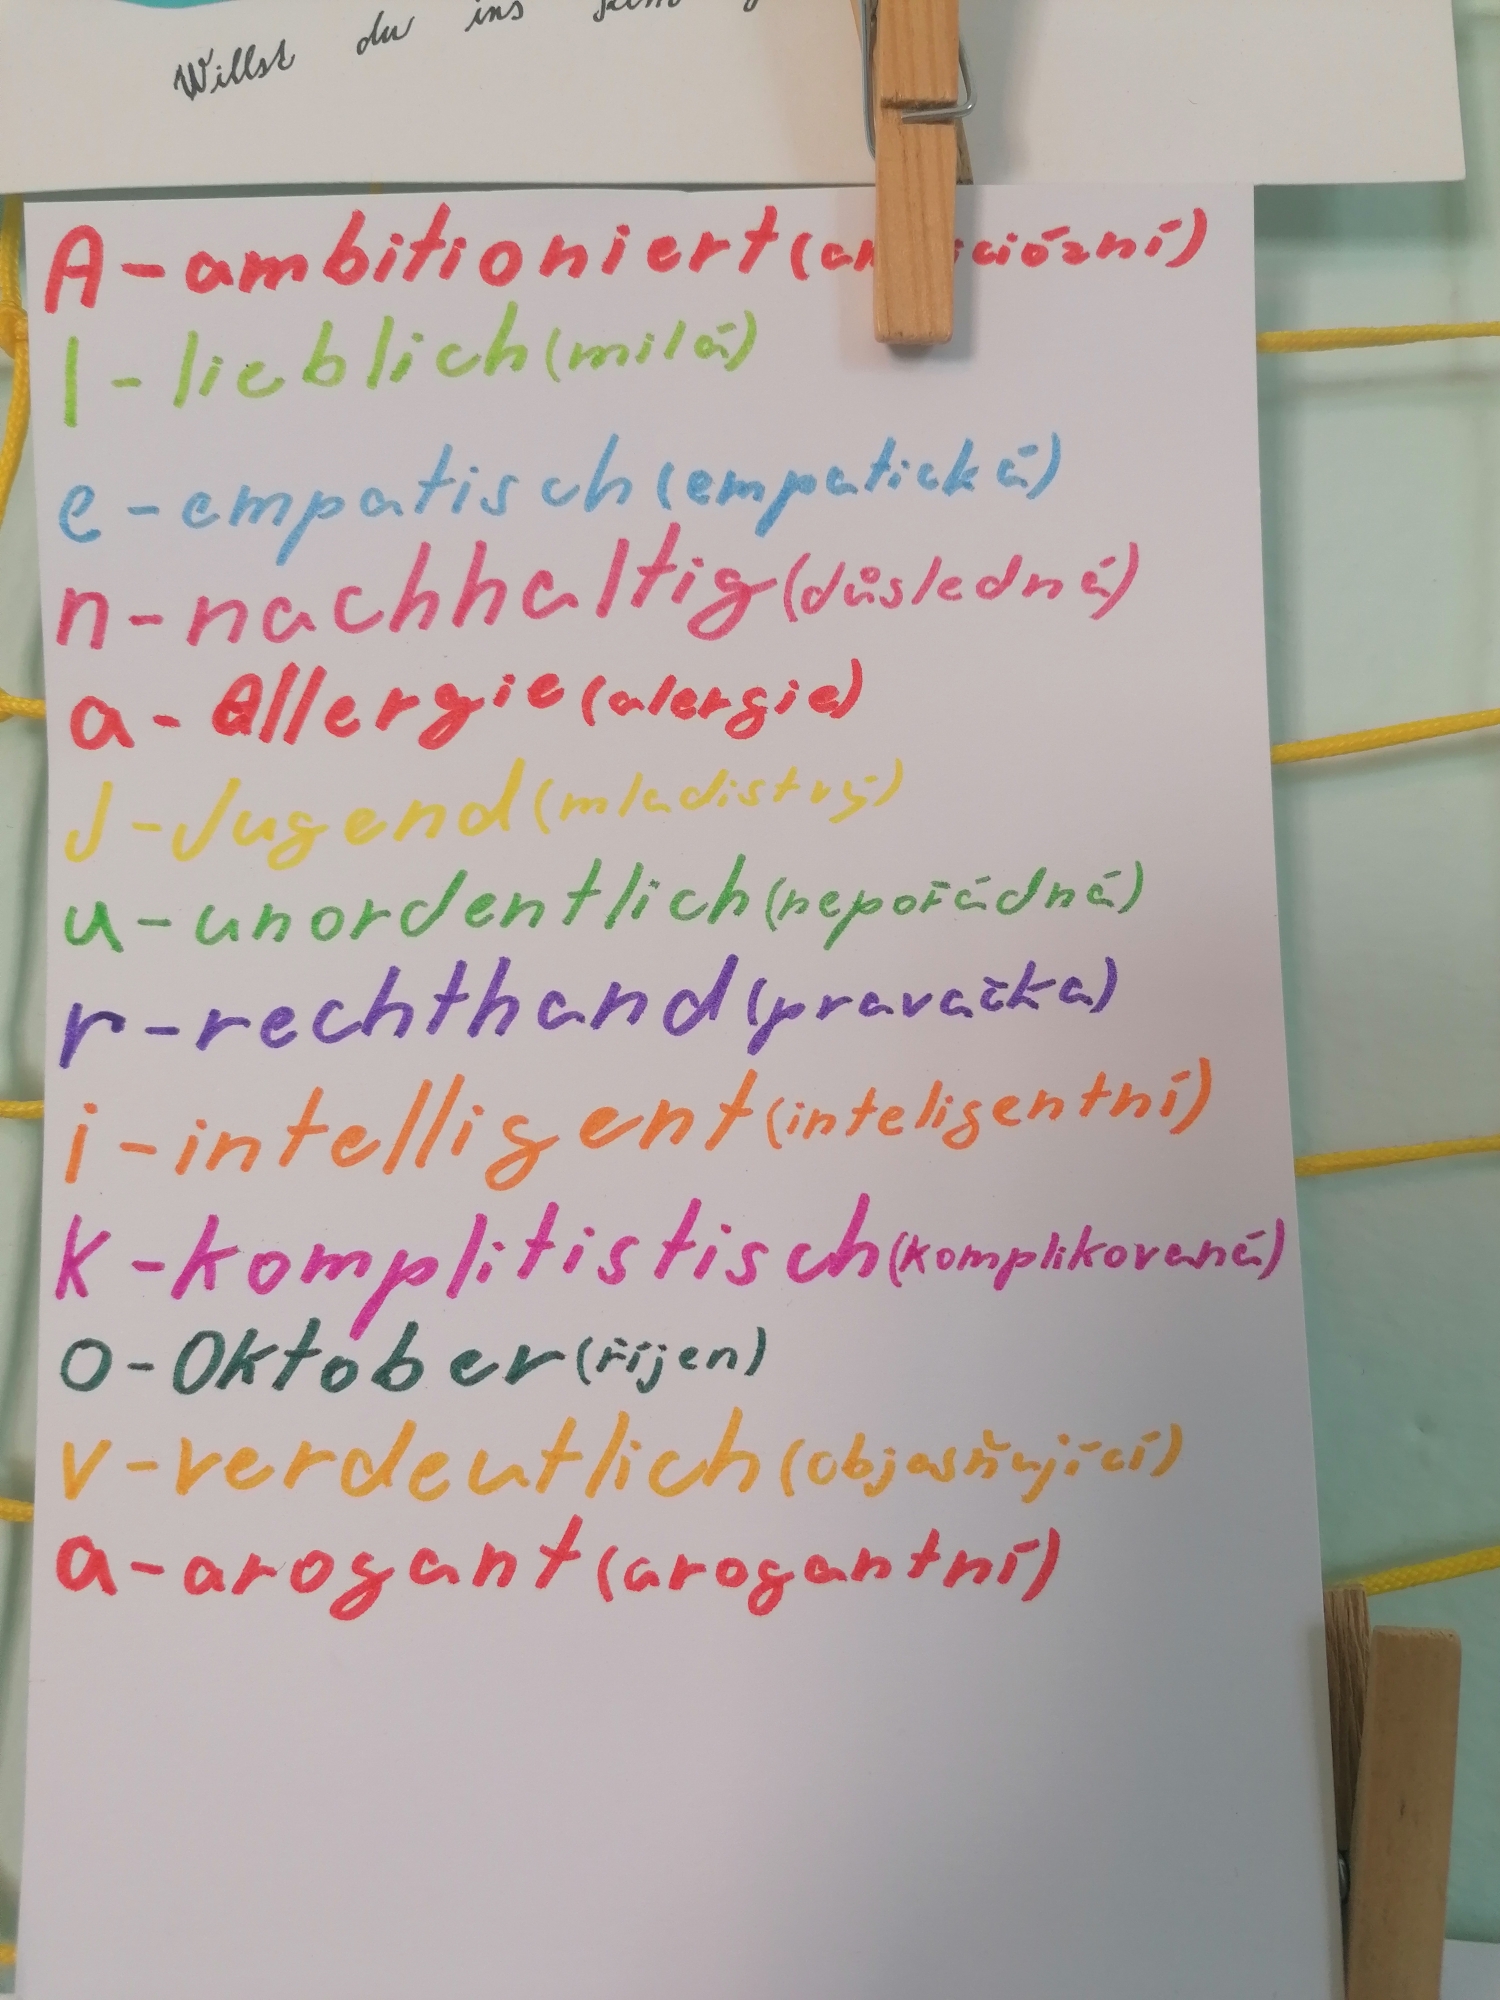 Willst du ins
A-ambitioniert
l-lieblich(milá)
e-empatisch(empatická)
n-nachhaltig(důsledná)
a-Allergie(alergie)
J-Jugend(mladistvý)
u-unordentlich(nepořádná)
r-rechthand(pravačka)
i-intelligent(inteligentní)
k-komplitistisch(komplikovaná)
o-Oktober(říjen)
v-verdeutlich(objasňující)
a-arogant(arogantní)